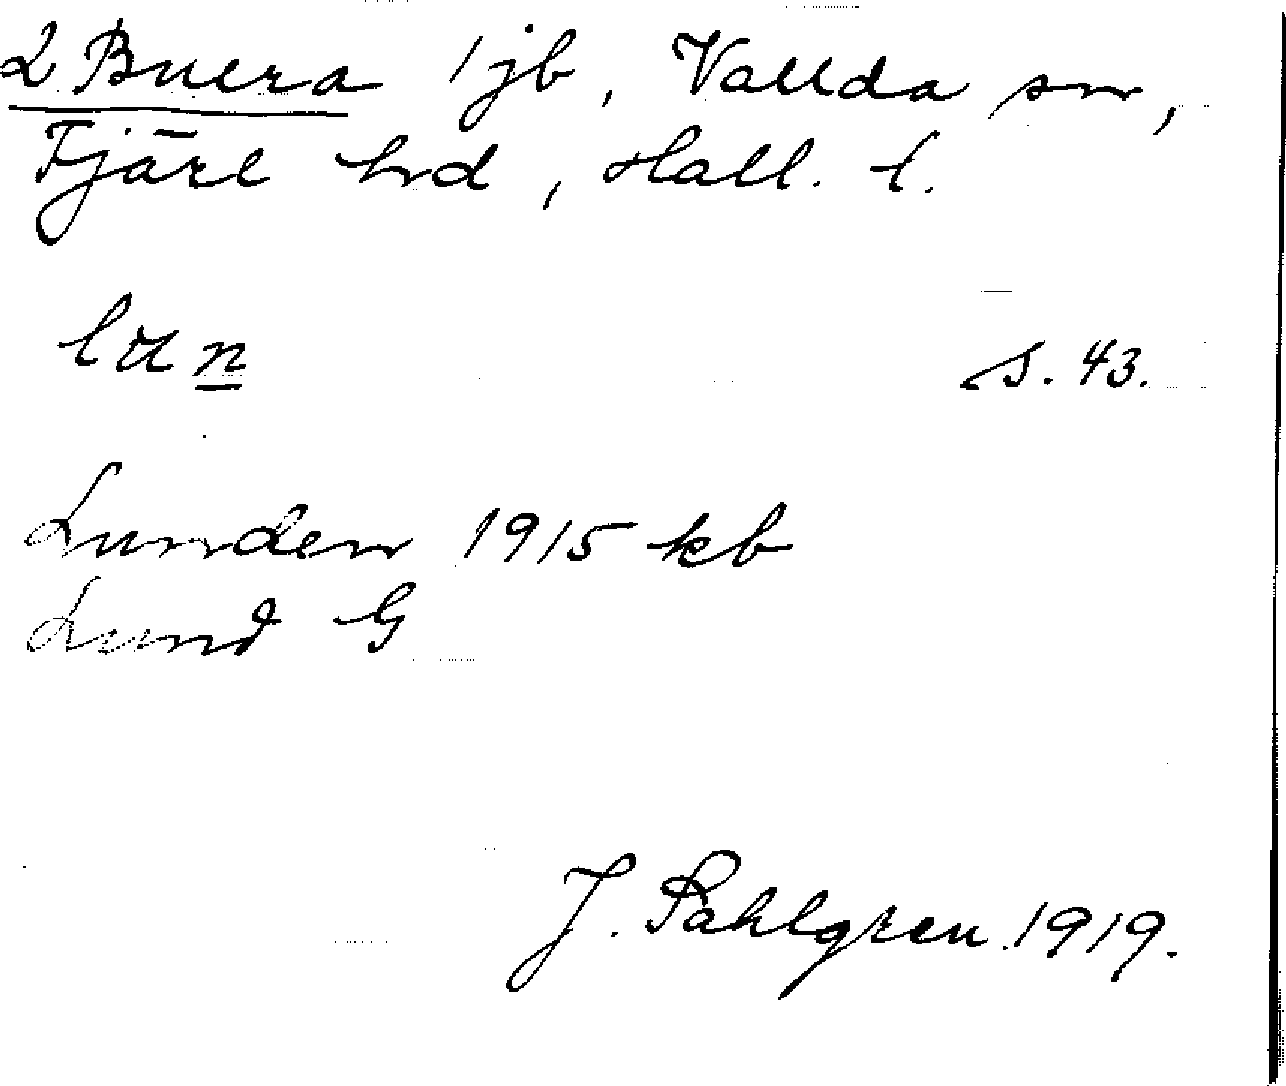 2 Buera 1 jb, Vallda sn,
Fjäre hrd, Hall. l.
lun s. 43.
Lunden 1915 kb
Lund G
J. Sahlgren 1919.